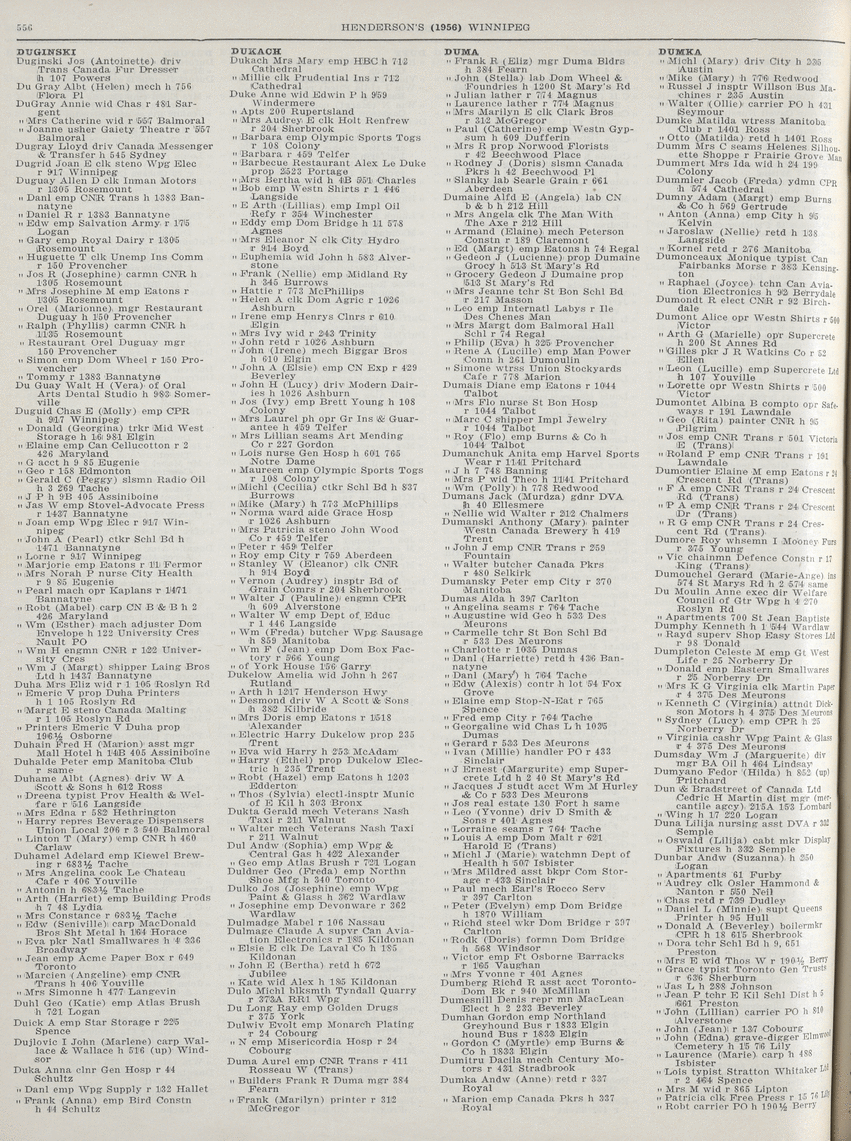 556
HENDERSON'S (1956) WINNIPEG
DUGINSKI
Duginski Jos (Antoinette) driv
Trans Canada Fur Dresser
h 107 Powers
Du Gray Albt (Helen) mech h 756
Flora Pl
DuGray Annie wid Chas r 481 Sar-
gent
" Mrs Catherine wid r 557 Balmoral
" Joanne usher Gaiety Theatre r 557
Balmoral
Dugray Lloyd driv Canada Messenger
& Transfer h 545 Sydney
Dugrid Joan E clk steno Wpg Elec
r 917 Winnipeg
Duguay Allen D clk Inman Motors
r 1305 Rosemount
" Danl emp CNR Trans h 1383 Ban-
natyne
" Daniel R r 1383 Bannatyne
" Edw emp Salvation Army r 175
Logan
" Gary emp Royal Dairy r 1305
Rosemount
" Huguette T clk Unemp Ins Comm
r 150 Provencher
" Jos R (Josephine) carmn CNR h
1305 Rosemount
" Mrs Josephine M emp Eatons r
1305 Rosemount
" Orel (Marionne) mgr Restaurant
Duguay h 150 Provencher
" Ralph (Phyllis) carmn CNR h
1135 Rosemount
" Restaurant Orel Duguay mgr
150 Provencher
" Simon emp Dom Wheel r 150 Pro-
vencher
" Tommy r 1383 Bannatyne
Du Guay Walt H (Vera) of Oral
Arts Dental Studio h 983 Somer-
ville
Duguid Chas E (Molly) emp CPR
h 917 Winnipeg
" Donald (Georgina) trkr Mid West
Storage h 16 981 Elgin
" Elaine emp Can Cellucotton r 2
426 Maryland
" G acct h 9 85 Eugenie
" Geo r 158 Edmonton
" Gerald C (Peggy) slsmn Radio Oil
h 3 269 Tache
" J P h 9B 405 Assiniboine
" Jas W emp Stovel-Advocate Press
r 1437 Bannatyne
" Joan emp Wpg Elec r 917 Win-
nipeg
" John A (Pearl) ctkr Schl Bd h
1471 Bannatyne
" Lorne r 917 Winnipeg
" Marjorie emp Eatons r 11 Fermor
" Mrs Norah P nurse City Health
r 9 85 Eugenie
" Pearl mach opr Kaplans r 1471
Bannatyne
" Robt (Mabel) carp CN B & B h 2
426 Maryland
" Wm (Esther) mach adjuster Dom
Envelope h 122 University Cres
Nault PO
" Wm H engmn CNR r 122 Univer-
sity Cres
" Wm J (Margt) shipper Laing Bros
Ltd h 1437 Bannatyne
Duha Mrs Eliz wid r 1 105 Roslyn Rd
" Emeric V prop Duha Printers
h 1 105 Roslyn Rd
" Margt E steno Canada Malting
r 1 105 Roslyn Rd
" Printers Emeric V Duha prop
196½ Osborne
Duhain Fred H (Marion) asst mgr
Mall Hotel h 14B 405 Assiniboine
Duhalde Peter emp Manitoba Club
r same
Duhame Albt (Agnes) driv W A
Scott & Sons h 612 Ross
" Dreena typist Prov Health & Wel-
fare r 516 Langside
" Mrs Edna r 582 Hethrington
" Harry repres Beverage Dispensers
Union Local 206 r 3 540 Balmoral
" Linton T (Mary) emp CNR h 460
Carlaw
Duhamel Adelard emp Kiewel Brew-
ing r 683½ Tache
" Mrs Angelina cook Le Chateau
Cafe r 406 Youville
" Antonin h 683½ Tache
" Arth (Harriet) emp Building Prods
h 7 48 Lydia
" Mrs Constance r 683½ Tache
" Edw (Seniville) carp MacDonald
Bros Sht Metal h 164 Horace
" Eva pkr Natl Smallwares h 4 336
Broadway
" Jean emp Acme Paper Box r 649
Toronto
" Marcien (Angeline) emp CNR
Trans h 406 Youville
" Mrs Simonne h 477 Langevin
Duhl Geo (Katie) emp Atlas Brush
h 721 Logan
Duick A emp Star Storage r 225
Spence
Dujlovic I John (Marlene) carp Wal-
lace & Wallace h 516 (up) Wind-
sor
Duka Anna clnr Gen Hosp r 44
Schultz
" Danl emp Wpg Supply r 132 Hallet
" Frank (Anna) emp Bird Constn
h 44 Schultz
DUKACH
Dukach Mrs Mary emp HBC h 712
Cathedral
" Millie clk Prudential Ins r 712
Cathedral
Duke Anne wid Edwin P h 959
Windermere
" Apts 200 Rupertsland
" Mrs Audrey E clk Holt Renfrew
r 204 Sherbrook
" Barbara emp Olympic Sports Togs
r 108 Colony
" Barbara r 459 Telfer
" Barbecue Restaurant Alex Le Duke
prop 2523 Portage
" Mrs Bertha wid h 4B 551 Charles
" Bob emp Westn Shirts r 1 446
Langside
" E Arth (Lillias) emp Impl Oil
Refy r 354 Winchester
" Eddy emp Dom Bridge h 11 578
Agnes
" Mrs Eleanor N clk City Hydro
r 914 Boyd
" Euphemia wid John h 583 Alver-
stone
" Frank (Nellie) emp Midland Ry
h 345 Burrows
" Hattie r 773 McPhillips
" Helen A clk Dom Agric r 1026
Ashburn
" Irene emp Henrys Clnrs r 610
Elgin
" Mrs Ivy wid r 243 Trinity
" John retd r 1026 Ashburn
" John (Irene) mech Biggar Bros
h 610 Elgin
" John A (Elsie) emp CN Exp r 429
Beverley
" John H (Lucy) driv Modern Dair-
ies h 1026 Ashburn
" Jos (Ivy) emp Brett Young h 108
Colony
" Mrs Laurel ph opr Gr Ins & Guar-
antee h 459 Telfer
" Mrs Lillian seams Art Mending
Co r 227 Gordon
" Lois nurse Gen Hosp h 601 765
Notre Dame
" Maureen emp Olympic Sports Togs
r 108 Colony
" Michl (Cecilia) ctkr Schl Bd h 837
Burrows
" Mike (Mary) h 773 McPhillips
" Norma ward aide Grace Hosp
r 1026 Ashburn
" Mrs Patricia steno John Wood
Co r 459 Telfer
" Peter r 459 Telfer
" Roy emp City r 759 Aberdeen
" Stanley W (Eleanor) clk CNR
h 914 Boyd
" Vernon (Audrey) insptr Bd of
Grain Comrs r 204 Sherbrook
" Walter J (Pauline) engmn CPR
h 609 Alverstone
" Walter W emp Dept of Educ
r 1 446 Langside
" Wm (Freda) butcher Wpg Sausage
h 859 Manitoba
" Wm F (Jean) emp Dom Box Fac-
tory r 566 Young
" of York House 156 Garry
Dukelow Amelia wid John h 267
Rutland
" Arth h 1217 Henderson Hwy
" Desmond driv W A Scott & Sons
h 382 Kilbride
" Mrs Doris emp Eatons r 1518
Alexander
" Electric Harry Dukelow prop 235
Trent
" Eva wid Harry h 253 McAdam
" Harry (Ethel) prop Dukelow Elec-
tric h 235 Trent
" Robt (Hazel) emp Eatons h 1203
Edderton
" Thos (Sylvia) electl-instptr Munic
of E Kil h 303 Bronx
Dukta Gerald mech Veterans Nash
Taxi r 211 Walnut
" Walter mech Veterans Nash Taxi
r 211 Walnut
Dul Andw (Sophia) emp Wpg &
Central Gas h 422 Alexander
" Geo emp Atlas Brush r 721 Logan
Duldner Geo (Freda) emp Northn
Shoe Mfg h 340 Toronto
Dulko Jos (Josephine) emp Wpg
Paint & Glass h 362 Wardlaw
" Josephine emp Devonware r 362
Wardlaw
Dulmadge Mabel r 106 Nassau
Dulmage Claude A supvr Can Avia-
tion Electronics r 185 Kildonan
" Elsie E clk De Laval Co h 185
Kildonan
" John E (Bertha) retd h 672
Jubilee
" Kate wid Alex h 185 Kildonan
Dulo Michl blksmth Tyndall Quarry
r 373A RR1 Wpg
Du Long Ray emp Golden Drugs
r 375 York
Dulwiv Evolt emp Monarch Plating
r 24 Cobourg
" N emp Misericordia Hosp r 24
Cobourg
Duma Aurel emp CNR Trans r 411
Rosseau W (Trans)
" Builders Frank R Duma mgr 384
Fearn
" Frank (Marilyn) printer r 312
McGregor
DUMA
" Frank R (Eliz) mgr Duma Bldrs
h 384 Fearn
" John (Stella) lab Dom Wheel &
Foundries h 1200 St Mary's Rd
" Julian lather r 774 Magnus
" Laurence lather r 774 Magnus
" Mrs Marilyn E clk Clark Bros
r 312 McGregor
" Paul (Catherine) emp Westn Gyp-
sum h 609 Dufferin
" Mrs R prop Norwood Florists
r 42 Beechwood Place
" Rodney J (Doris) slsmn Canada
Pkrs h 42 Beechwood Pl
" Slanky lab Searle Grain r 661
Aberdeen
Dumaine Alfd E (Angela) lab CN
b & b h 212 Hill
" Mrs Angela clk The Man With
The Axe r 212 Hill
" Armand (Elaine) mech Peterson
Constn r 189 Claremont
" Ed (Margt) emp Eatons h 74 Regal
" Gedeon J (Lucienne) prop Dumaine
Grocy h 513 St Mary's Rd
" Grocery Gedeon J Dumaine prop
513 St Mary's Rd
" Mrs Jeanne tchr St Bon Schl Bd
r 217 Masson
" Leo emp Internatl Labys r Ile
Des Chenes Man
" Mrs Margt dom Balmoral Hall
Schl r 74 Regal
" Philip (Eva) h 325 Provencher
" Rene A (Lucille) emp Man Power
Comn h 261 Dumoulin
" Simone wtrss Union Stockyards
Cafe r 778 Marion
Dumais Diane emp Eatons r 1044
Talbot
" Mrs Flo nurse St Bon Hosp
r 1044 Talbot
" Marc C shipper Impl Jewelry
r 1044 Talbot
" Roy (Flo) emp Burns & Co h
1044 Talbot
Dumanchuk Anita emp Harvel Sports
Wear r 1141 Pritchard
" J h 7 748 Banning
" Mrs P wid Theo h 1141 Pritchard
" Wm (Polly) h 778 Redwood
Dumans Jack (Murdza) gdnr DVA
h 40 Ellesmere
" Nellie wid Walter r 212 Chalmers
Dumanski Anthony (Mary) painter
Westn Canada Brewery h 419
Trent
" John J emp CNR Trans r 259
Fountain
" Walter butcher Canada Pkrs
r 480 Selkirk
Dumansky Peter emp City r 370
Manitoba
Dumas Alda h 397 Carlton
" Angelina seams r 764 Tache
" Augustine wid Geo h 533 Des
Meurons
" Carmelle tchr St Bon Schl Bd
r 533 Des Meurons
" Charlotte r 1035 Dumas
" Danl (Harriette) retd h 436 Ban-
natyne
" Danl (Mary) h 764 Tache
" Edw (Alexis) contr h lot 54 Fox
Grove
" Elaine emp Stop-N-Eat r 765
Spence
" Fred emp City r 764 Tache
" Georgaline wid Chas L h 1035
Dumas
" Gerard r 533 Des Meurons
" Ivan (Millie) handler PO r 433
Sinclair
" J Ernest (Margurite) emp Super-
crete Ltd h 2 40 St Mary's Rd
" Jacques J studt acct Wm M Hurley
& Co r 533 Des Meurons
" Jos real estate 130 Fort h same
" Leo (Yvonne) driv D Smith &
Sons r 401 Agnes
" Lorraine seams r 764 Tache
" Louis A emp Dom Malt r 621
Harold E (Trans)
" Michl J (Marie) watchmn Dept of
Health h 507 Isbister
" Mrs Mildred asst bkpr Com Stor-
age r 433 Sinclair
" Paul mech Earl's Rocco Serv
r 397 Carlton
" Peter (Evelyn) emp Dom Bridge
h 1870 William
" Richd steel wkr Dom Bridge r 397
Carlton
" Rodk (Doris) formn Dom Bridge
h 568 Windsor
" Victor emp Ft Osborne Barracks
r 165 Vaughan
" Mrs Yvonne r 401 Agnes
Dumberg Richd R asst acct Toronto-
Dom Bk r 940 McMillan
Dumesnil Denis repr mn MacLean
Elect h 2 233 Beverley
Dumhan Gordon emp Northland
Greyhound Bus r 1833 Elgin
hound Bus r 1833 Elgin
" Gordon C (Myrtle) emp Burns &
Co h 1833 Elgin
Dumitru Dacila mech Century Mo-
tors r 431 Stradbrook
Dumka Andw (Anne) retd r 337
Royal
" Marion emp Canada Pkrs h 337
Royal
DUMKA
" Michl (Mary) driv City h 235
Austin
" Mike (Mary) h 776 Redwood
" Russel J insptr Willson Bus Ma-
chines r 235 Austin
" Walter (Ollie) carrier PO h 431
Seymour
Dumke Matilda wtress Manitoba
Club r 1401 Ross
" Otto (Matilda) retd h 1401 Ross
Dumm Mrs C seams Helenes Silhou-
ette Shoppe r Prairie Grove Man
Dummert Mrs Ida wid h 24 199
Colony
Dummler Jacob (Freda) ydmn CPR
h 574 Cathedral
Dumny Adam (Margt) emp Burns
& Co h 569 Gertrude
" Anton (Anna) emp City h 95
Kelvin
" Jaroslaw (Nellie) retd h 138
Langside
" Kornel retd r 276 Manitoba
Dumonceaux Monique typist Can
Fairbanks Morse r 383 Kensing-
ton
" Raphael (Joyce) tchn Can Avia-
tion Electronics h 92 Berrydale
Dumondt R elect CNR r 92 Birch-
dale
Dumont Alice opr Westn Shirts r 500
Victor
" Arth G (Marielle) opr Supercrete
h 200 St Annes Rd
" Gilles pkr J R Watkins Co r 52
Ellen
" Leon (Lucille) emp Supercrete Ltd
h 107 Youville
" Lorette opr Westn Shirts r 500
Victor
Dumontet Albina B compto opr Safe-
ways r 191 Lawndale
" Geo (Rita) painter CNR h 95
Pilgrim
" Jos emp CNR Trans r 501 Victoria
E (Trans)
" Roland P emp CNR Trans r 191
Lawndale
Dumontier Elaine M emp Eatons r 24
Crescent Rd (Trans)
" F A emp CNR Trans r 24 Crescent
Rd (Trans)
" P A emp CNR Trans r 24 Crescent
Dr (Trans)
" R G emp CNR Trans r 24 Cres-
cent Rd (Trans)
Dumore Roy whsemn I Mooney Furs
r 375 Young
" Vic chainmn Defence Constn r 17
King (Trans)
Dumouchel Gerard (Marie-Ange) ins
574 St Marys Rd h 2 574 same
Du Moulin Anne exec dir Welfare
Council of Gtr Wpg h 4 270
Roslyn Rd
" Apartments 700 St Jean Baptiste
Dumphy Kenneth h 1 544 Wardlaw
" Rayd superv Shop Easy Stores Ltd
r 98 Donald
Dumpleton Celeste M emp Gt West
Life r 25 Norberry Dr
" Donald emp Eastern Smallwares
r 25 Norberry Dr
" Mrs K G Virginia clk Martin Paper
r 4 375 Des Meurons
" Kenneth C (Virginia) attndt Dick-
son Motors h 4 375 Des Meurons
" Sydney (Lucy) emp CPR h 25
Norberry Dr
" Virginia cashr Wpg Paint & Glass
r 4 375 Des Meurons
Dumsday Wm J (Marguerite) div
mgr BA Oil h 464 Lindsay
Dumyano Fedor (Hilda) h 852 (up)
Pritchard
Dun & Bradstreet of Canada Ltd
Cedric H Martin dist mgr (mer-
cantile agcy) 215A 153 Lombard
" Wing h 17 220 Logan
Duna Lilija nursing asst DVA r 332
Semple
" Oswald (Lilija) cabt mkr Display
Fixtures h 332 Semple
Dunbar Andw (Suzanna) h 250
Logan
" Apartments 61 Furby
" Audrey clk Osler Hammond &
Nanton r 550 Neil
" Chas retd r 739 Dudley
" Daniel L (Minnie) supt Queens
Printer h 95 Hull
" Donald A (Beverley) boilermkr
CPR h 18 615 Sherbrook
" Dora tchr Schl Bd h 9, 651
Preston
" Mrs E wid Thos W r 190½ Berry
" Grace typist Toronto Gen Trusts
r 636 Sherburn
" Jas L h 288 Johnson
" Jean P tchr E Kil Schl Dist h 5
661 Preston
" John (Lillian) carrier PO h 810
Alverstone
" John (Jean) r 137 Cobourg
" John (Edna) grave-digger Elmwood
Cemetery h 15 76 Lily
" Laurence (Marie) carp h 488
Isbister
" Lois typist Stratton Whitaker Ltd
r 2 464 Spence
" Mrs M wid r 865 Lipton
" Patricia clk Free Press r 15 76 Lily
" Robt carrier PO h 190½ Berry